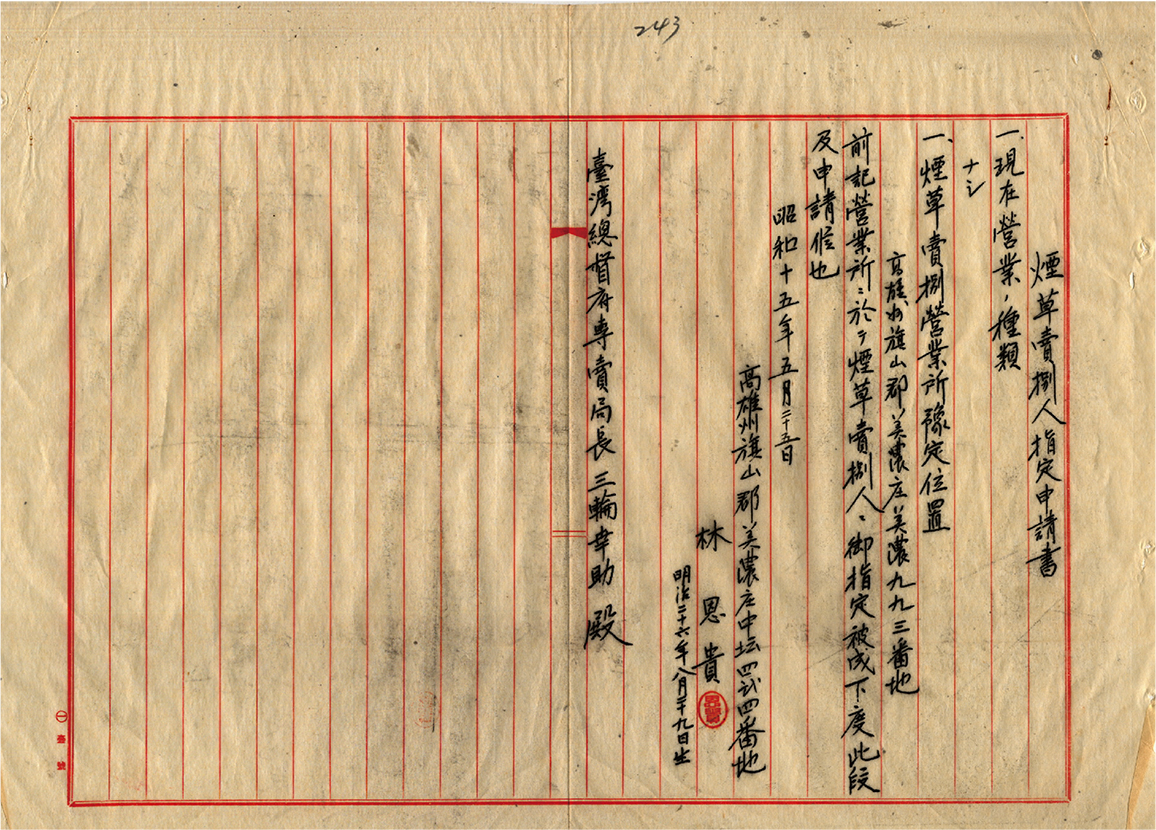 243
煙草賣捌人指定申請書
一、現在營業ノ種類
ナシ
一、煙草賣捌營業所豫定位置
高雄州旗山郡美濃庄美濃九九三番地
前記營業所ニ於テ煙草賣捌人ニ御指定被成下度此段
及申請候也
昭和十五年五月二十五日
高雄州旗山郡美濃庄中坛四弍四番地
林恩貴
明治二十六年八月二十九日生
臺灣總督府専賣局長三輪幸助殿
㊀臺號